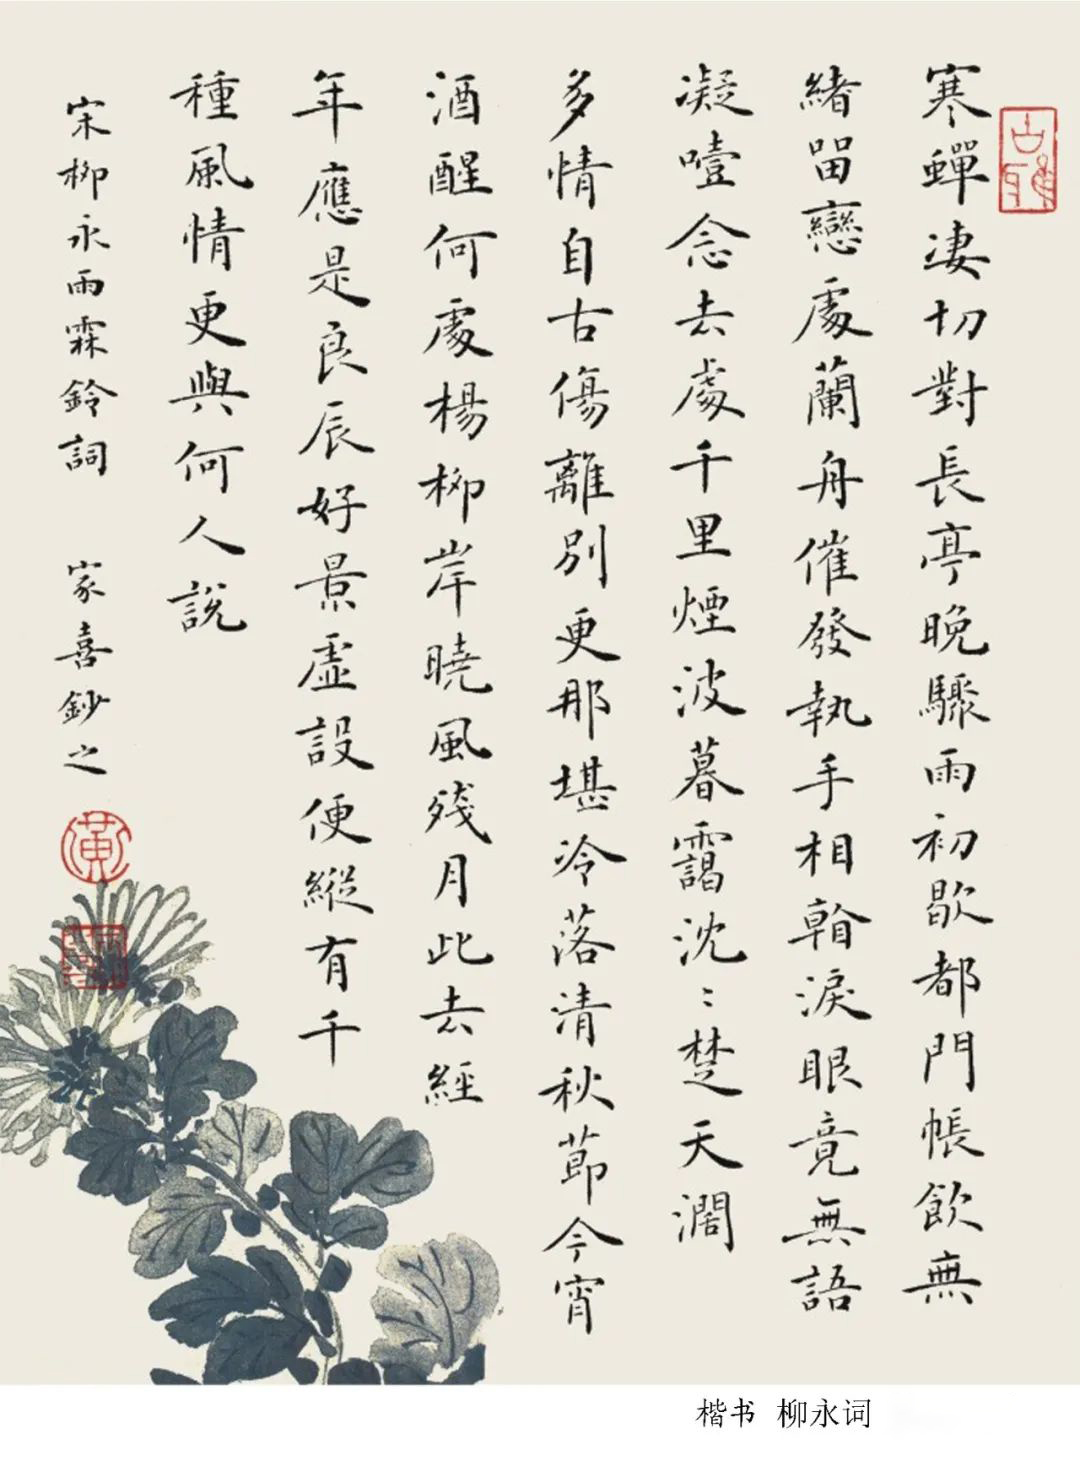 寒蟬凄切對長亭晚驟雨初歇都門帳飲無
緒留戀處蘭舟催發執手相看淚眼竟無語
凝噎念去處千里煙波暮靄沈〻楚天濶
多情自古傷離別更那堪冷落清秋莭今宵
酒醒何處楊柳岸曉風殘月此去經
年應是良辰好景虛設便縱有千
種風情更與何人說
宋柳永雨霖鈴詞 家喜鈔之
黃
楷书 柳永词